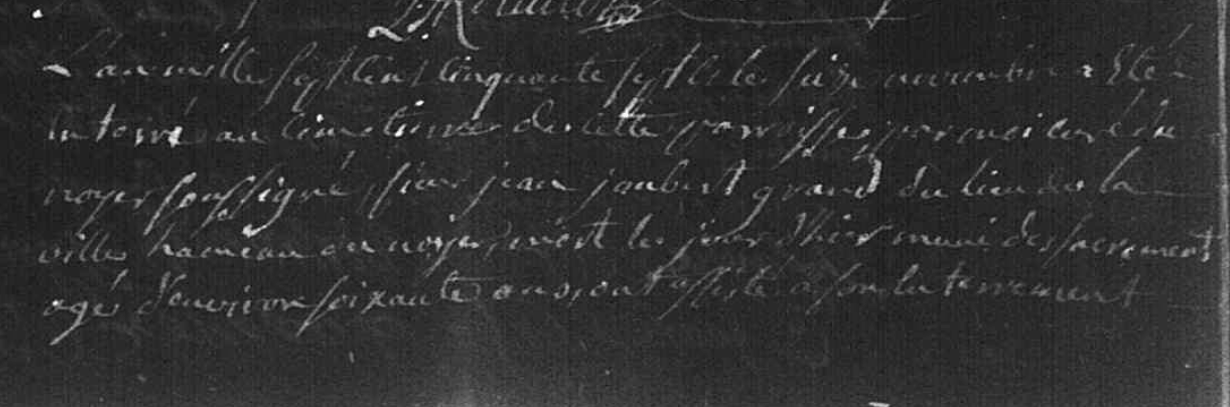 L'an mille sept cent cinquante sept et le seize novembre a Eté
enterré au cimetiere de cette parroisse par moi curé du
noyer soussigné, sieur jean joubert grand du lieu de la
ville hameau du noyer, mort le jour d'hier muni des sacrements
agé d'environ soixante ans, ont assisté a son enterrement